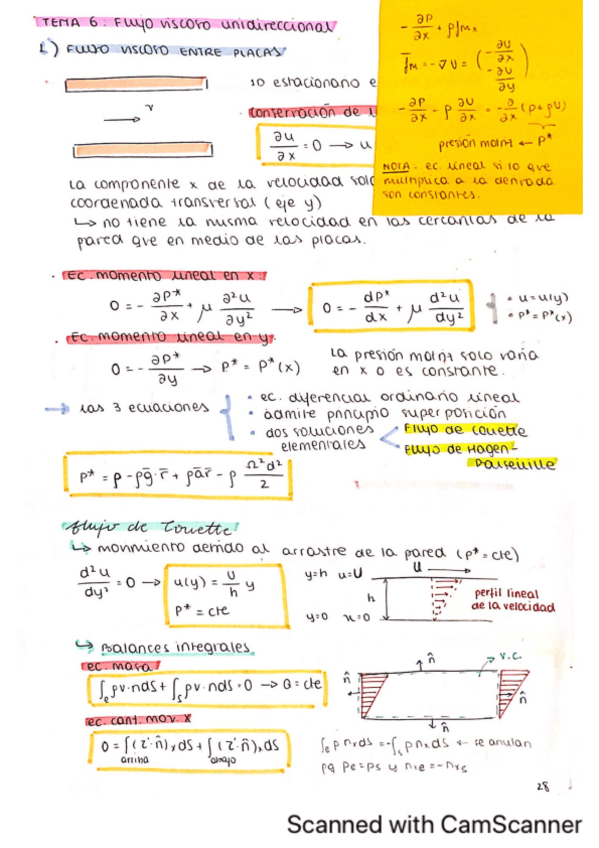 TEMA 6: Flujo viscoso unidireccional
1) FLUJO VISCOSO ENTRE PLACAS
-∂P/∂x + ρfmx
f̄m = -∇U = (-∂U/∂x, -∂U/∂y)
-∂P/∂x - ρ ∂U/∂x = -∂/∂x (p+ρU)
presión motriz ← P*
NOTA: ec. lineal si lo que
multiplica a la derivada
son constantes.
so estacionario e
v
conservación de
∂u/∂x = 0 → u
La componente x de la velocidad solo
coordenada transversal (eje y)
↳ no tiene la misma velocidad en las cercanías de la
pared que en medio de las placas.
· Ec. momento lineal en x:
0 = -∂P*/∂x + μ ∂²u/∂y² → 0 = -dP*/dx + μ d²u/dy²
• u=u(y)
• P*=P*(x)
· Ec. momento lineal en y:
0 = -∂P*/∂y → P* = P*(x)
La presión motriz solo varía
en x o es constante.
→ las 3 ecuaciones
• ec. diferencial ordinario lineal
• admite principio superposición
• dos soluciones elementales
Flujo de Couette
Flujo de Hagen-
Poiseuille
P* = p - ρḡ·r̄ + ρār̄ - ρ Ω²d²/2
Flujo de Couette
↳ movimiento debido al arrastre de la pared (P*=cte)
d²u/dy² = 0 → u(y) = U/h y
P* = cte
y=h u=U U
h
y=0 u=0
perfil lineal
de la velocidad
↳ Balances integrales
ec. masa
∫e ρv·nds + ∫s ρv·nds = 0 → Q = cte
ec. cant. mov. x
0 = ∫(τ'·n̂)x dS + ∫(τ'·n̂)x dS
arriba abajo
n̂ v.c.
n̂ n̂
n̂
∫e p nx ds = -∫s p nx ds ← se anulan
pq Pe=Ps y nxe=-nxs
28
Scanned with CamScanner